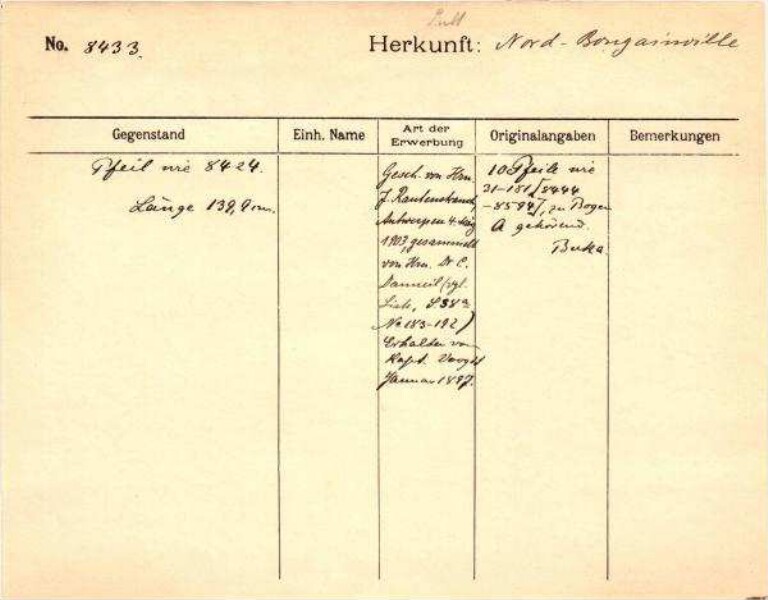 No. 8433.
Herkunft: Nord-Bougainville
Gegenstand
Einh. Name
Art der Erwerbung
Originalangaben
Bemerkungen
Pfeil wie 8424.
Länge 139,9 cm.
Gesch. von Hrn.
J. Rautenstrauch,
Antwerpen 4. März
1903, gesammelt
von Hrn. Dr C.
Danneil (vgl.
Liste, S 38a
No 183-192)
Erhalten von
Kapt.
Januar 1897.
10 Pfeile wie
31-181 [8444
-8594], zu Bogen
A gehörend.
Buka.